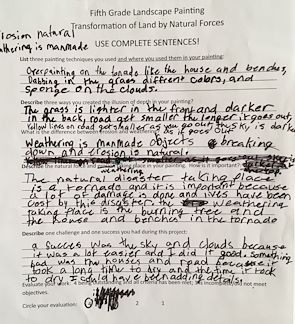 Fifth Grade Landscape Painting
Transformation of Land by Natural Forces
erosion natural
weathering is manmade
USE COMPLETE SENTENCES!
List three painting techniques you used and where you used them in your painting:
Overpainting on the tonado like the house and benches,
Dabbing in the grass different colors, and
sponge on the clouds.
Describe three ways you created the illusion of depth in your painting?
The grass is lighter in the front and darker
in the back, road get smaller the longer it goes out,
Yellow lines on road get smaller as he goes out the sky is dark
What is the difference between erosion and weathering? as it goes
Weathering is manmade objects breaking
down and erosion is natural.
Describe the natural
taking place in your painting. How is it
weathering
The natural disaster taking place
is a tornado and it is important because
a lot of damage is done and lives have been
cost by this disaster. the weathering
taking place is the burning tree and
the house and benches in the tornado
Describe one challenge and one success you had during this project:
a success was the sky and clouds because
it was a lot easier and I did it good. Something
bad was the houses and road because it
took a long time to dry and the time it took
to dry I could have been adding details.
Evaluate your work. 4 being outstanding and all criteria has been met; 1 is incomplete/did not meet
objectives.
Circle your evaluation:
2
1